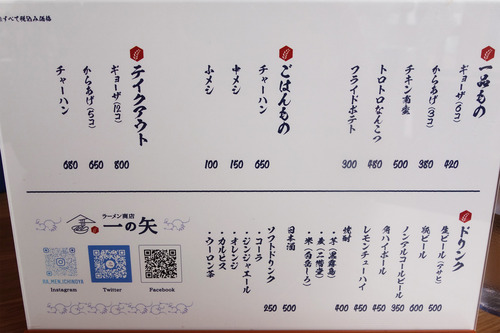 はすべて税込み価格
一品もの
ギョーザ(6コ) 420
からあげ(3コ) 380
チキン南蛮 500
トロトロなんこつ 480
フライドポテト 300
ごはんもの
チャーハン 650
中メシ 150
小メシ 100
テイクアウト
ギョーザ(12コ) 800
からあげ(5コ) 650
チャーハン 680
ドリンク
生ビール(アサヒ) 500
瓶ビール 600
ノンアルコールビール 350
角ハイボール 450
レモンチューハイ 450
焼酎 400
・芋(黒霧島)
・麦(二階堂)
・米
日本酒 500
ソフトドリンク 250
・コーラ
・ジンジャエール
・オレンジ
・カルピス
・ウーロン茶
ラーメン商店
一の矢
RA.MEN.ICHINOYA
Instagram
Twitter
Facebook